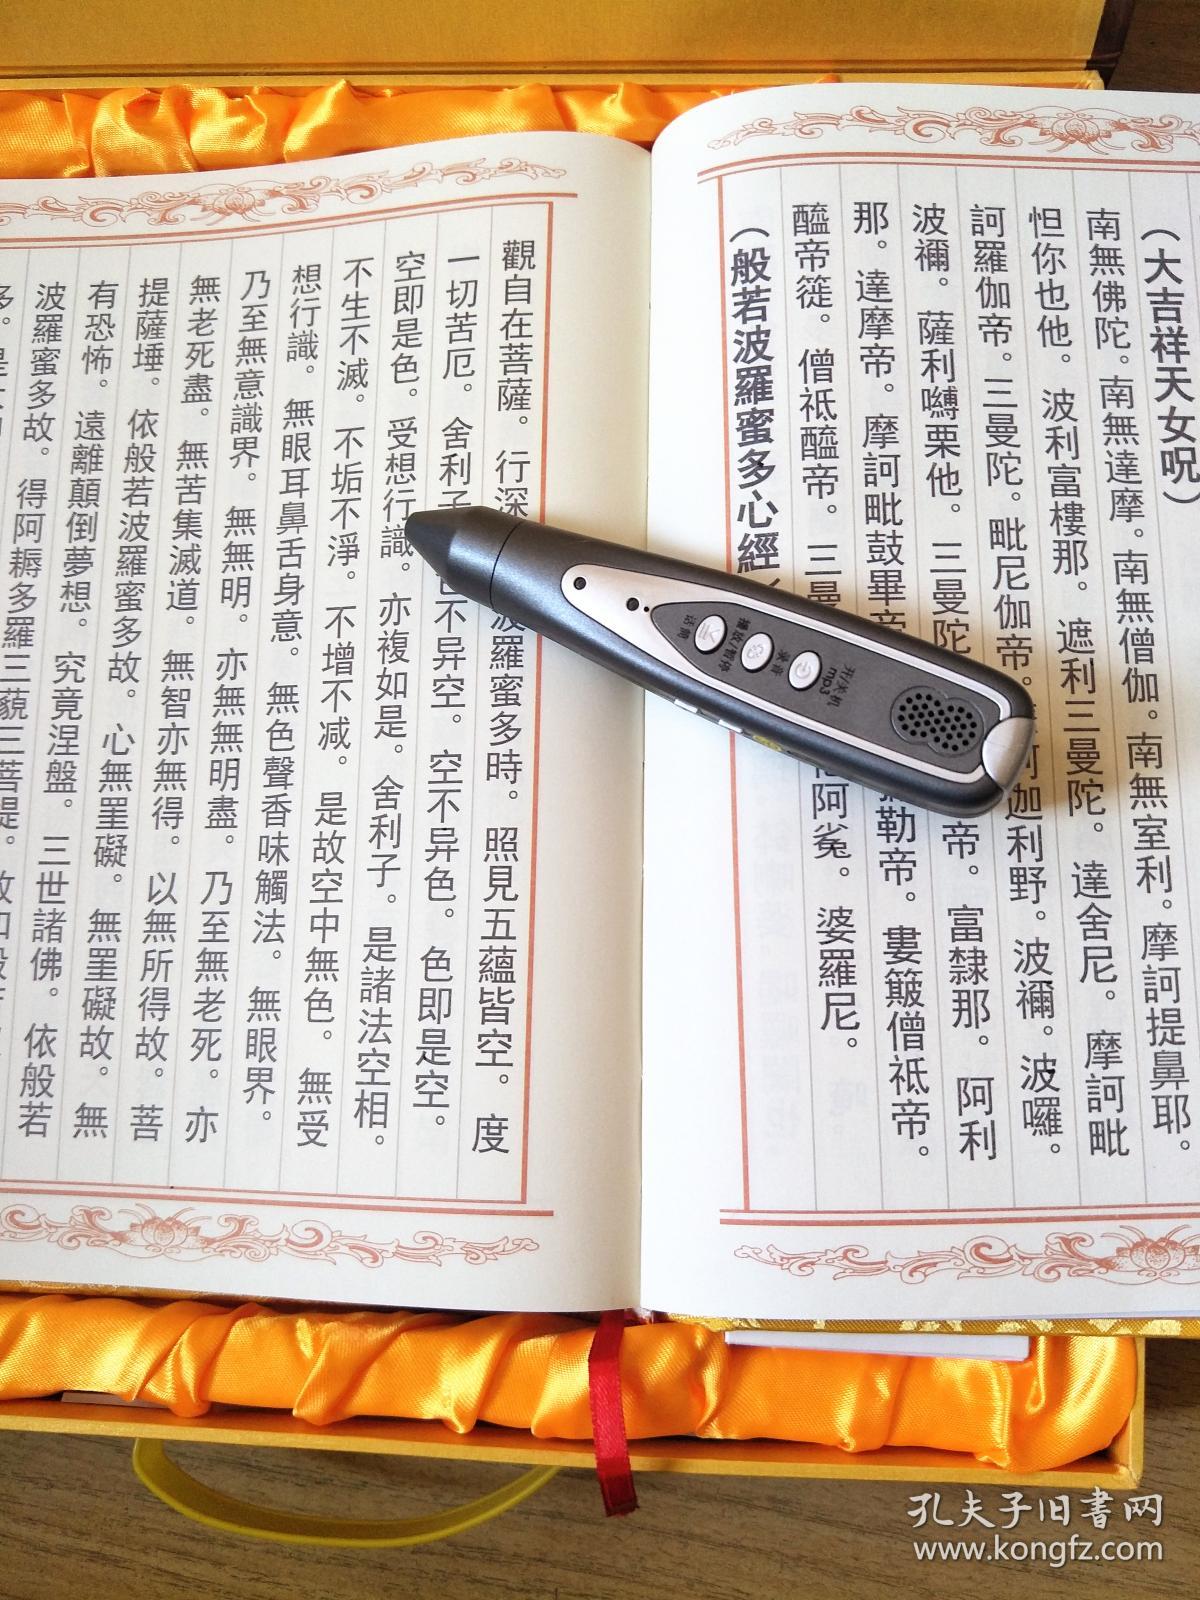 （大吉祥天女呪）
南無佛陀。南無達摩。南無僧伽。南無室利。摩訶提鼻耶。
怛你也他。波利富樓那。遮利三曼陀。達舍尼。摩訶毗
訶羅伽帝。三曼陀。毗尼伽帝。訶迦利野。波禰。波囉。
波禰。薩利嚩栗他。三曼陀帝。富隸那。阿利
那。達摩帝。摩訶毗鼓畢帝勒帝。婁簸僧祇帝。
醯帝簁。僧祇醯帝。三曼阿㝹。婆羅尼。
（般若波羅蜜多心經
觀自在菩薩。行深波羅蜜多時。照見五蘊皆空。度
一切苦厄。舍利子色不异空。空不异色。色即是空。
空即是色。受想行識。亦複如是。舍利子。是諸法空相。
不生不滅。不垢不淨。不增不减。是故空中無色。無受
想行識。無眼耳鼻舌身意。無色聲香味觸法。無眼界。
乃至無意識界。無無明。亦無無明盡。乃至無老死。亦
無老死盡。無苦集滅道。無智亦無得。以無所得故。菩
提薩埵。依般若波羅蜜多故。心無罣礙。無罣礙故。無
有恐怖。遠離顛倒夢想。究竟涅盤。三世諸佛。依般若
波羅蜜多故。得阿耨多羅三藐三菩提。
开/关机
mp3
录音
播放/暂停
话筒
孔夫子旧书网
www.kongfz.com